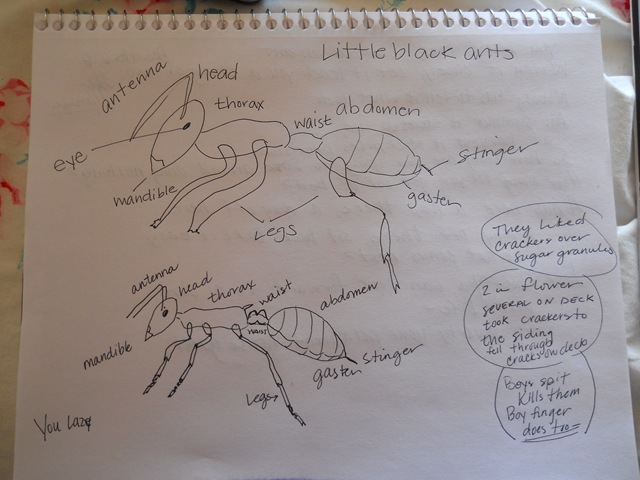 Little black ants
antenna
head
thorax
waist
abdomen
eye
stinger
mandible
gaster
Legs
They liked
crackers over
sugar granules
antenna
head
thorax
waist
abdomen
waist
mandible
stinger
gaster
Legs
2 in flower
several on deck
took crackers to
the siding
fell through
cracks on deck
Boys spit
kills them
Boy finger
does too
You Lazy